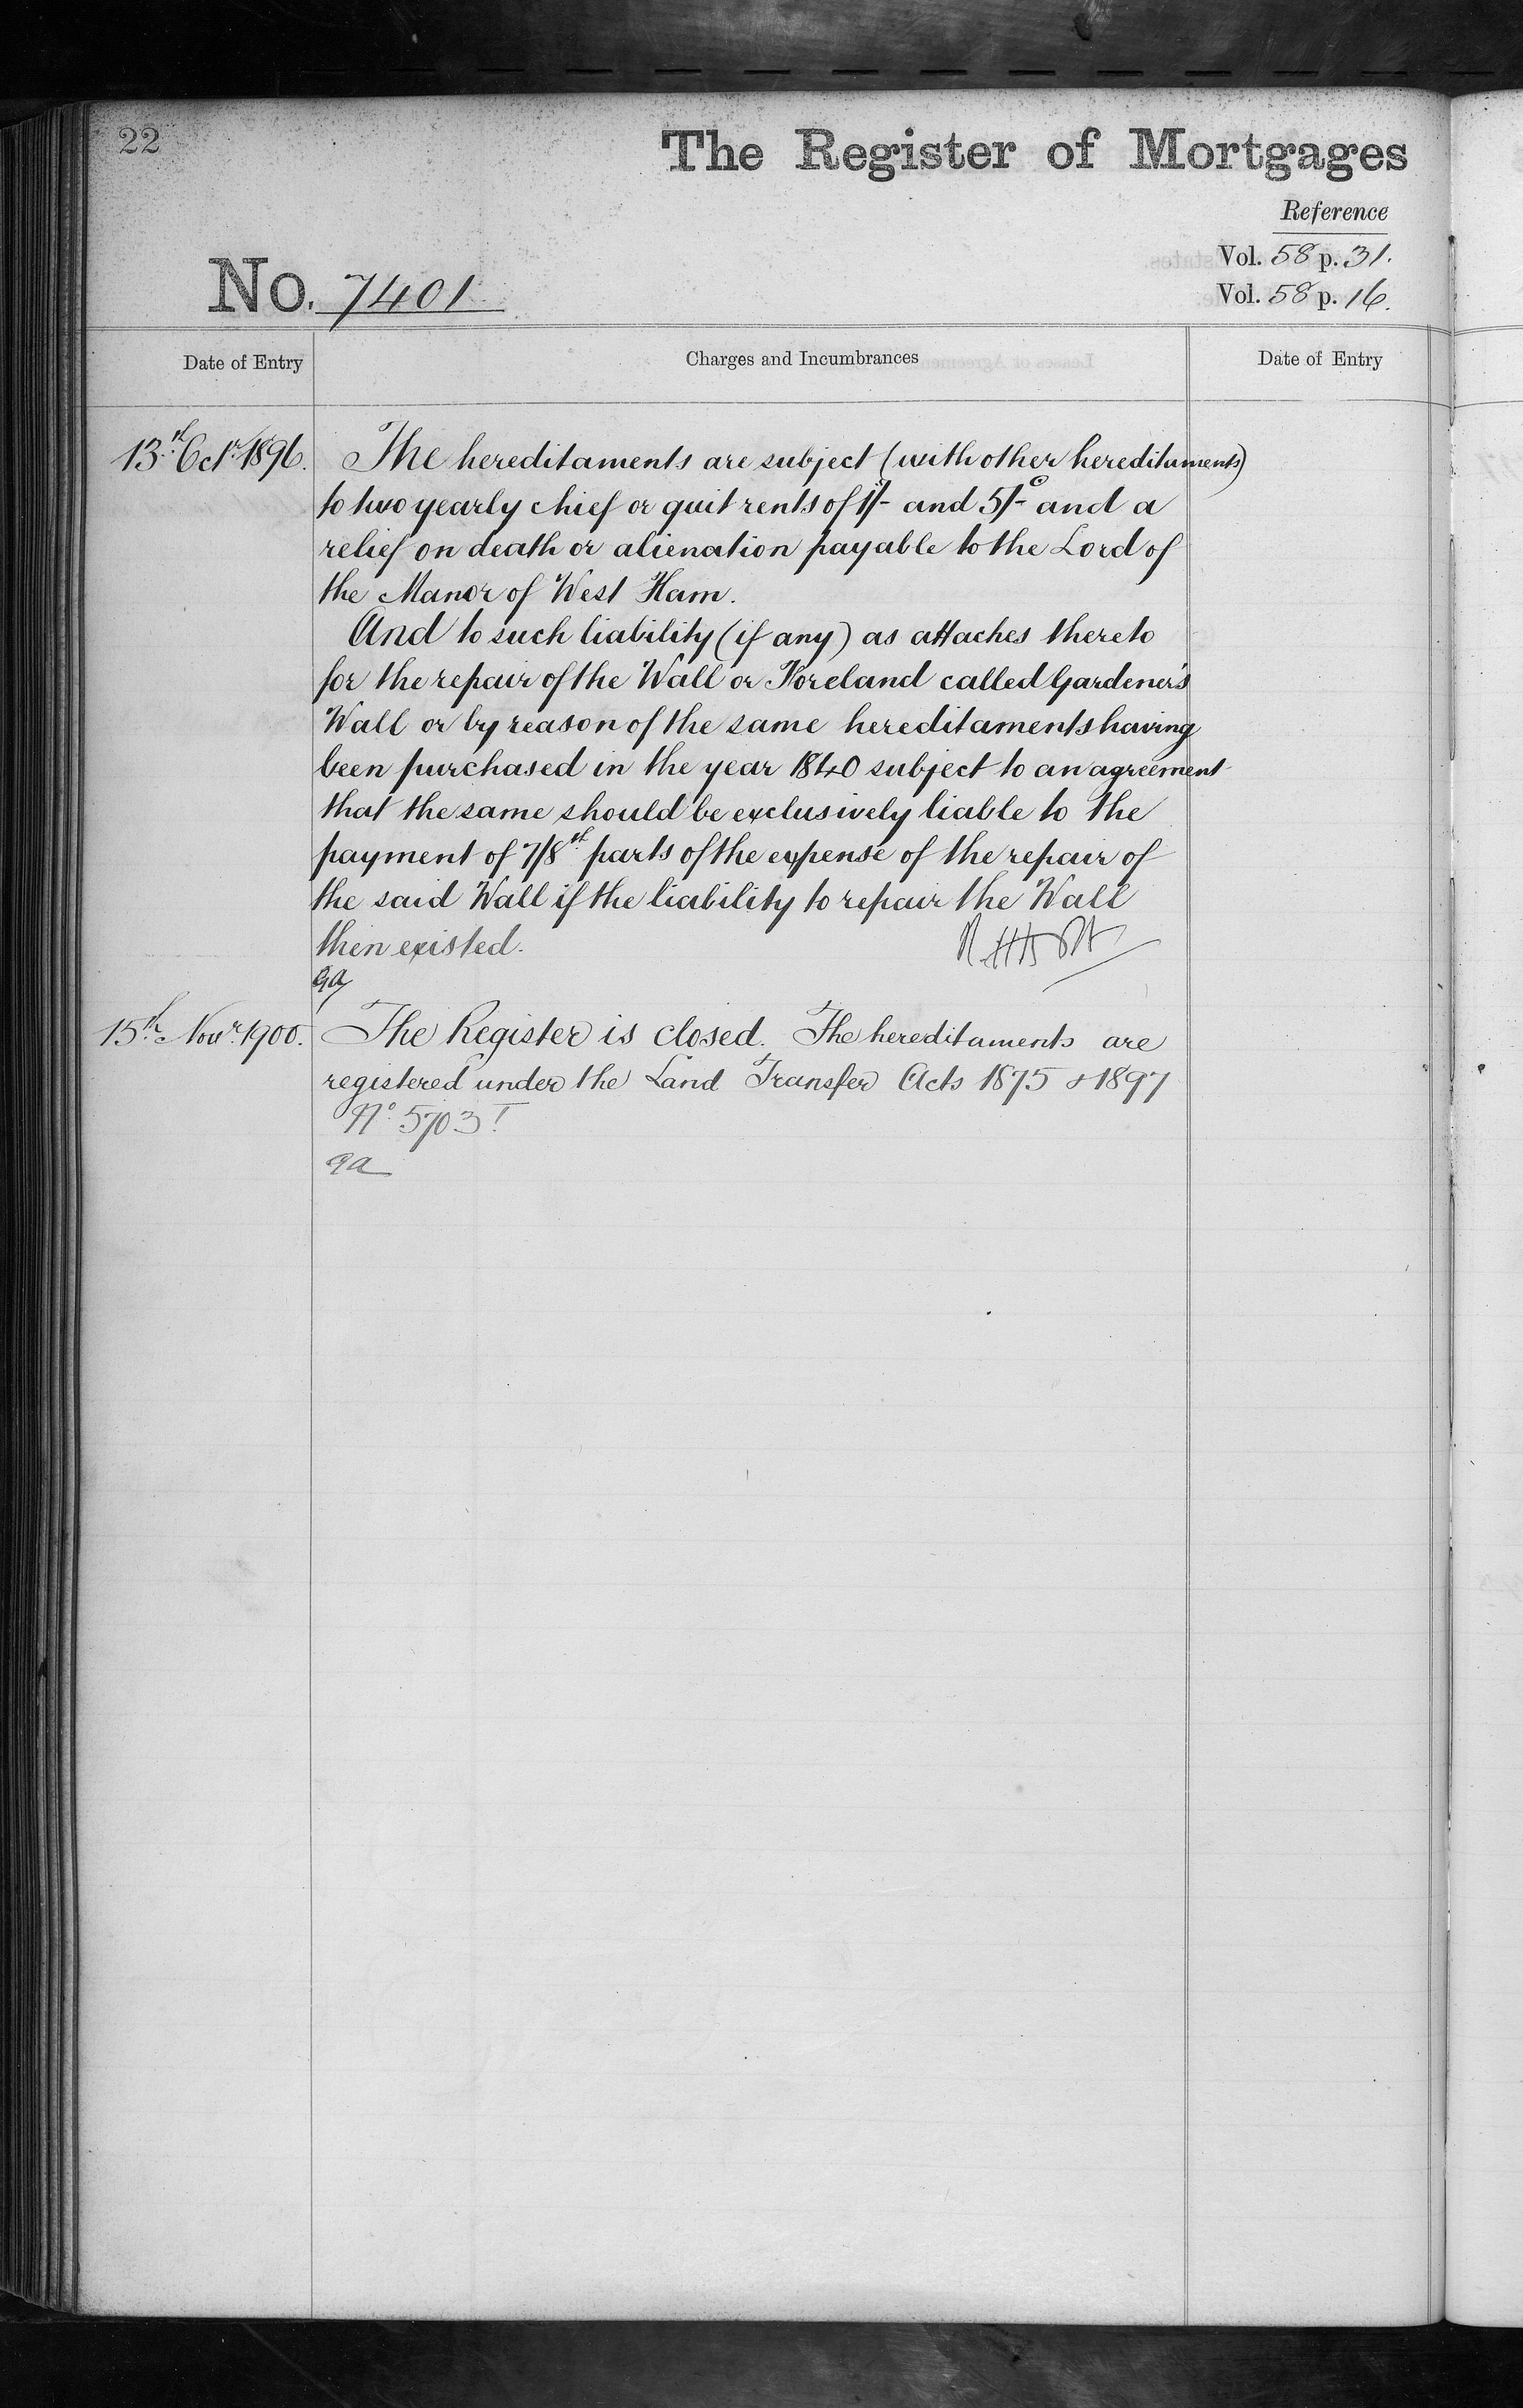 22
The Register of Mortgages
Reference
Vol. 58 p. 31.
Vol. 58 p. 16.
No. 7401
Date of Entry
Charges and Incumbrances
Date of Entry
13th Octr 1896.
The hereditaments are subject (with other hereditaments)
to two yearly chief or quit rents of 1/- and 5/- and a
relief on death or alienation payable to the Lord of
the Manor of West Ham.
And to such liability (if any) as attaches thereto
for the repair of the Wall or Foreland called Gardener's
Wall or by reason of the same hereditaments having
been purchased in the year 1840 subject to an agreement
that the same should be exclusively liable to the
payment of 7/8th parts of the expense of the repair of
the said Wall if the liability to repair the Wall
then existed.
15th Novr 1900.
The Register is closed. The hereditaments are
registered under the Land Transfer Acts 1875 & 1897
No 5703